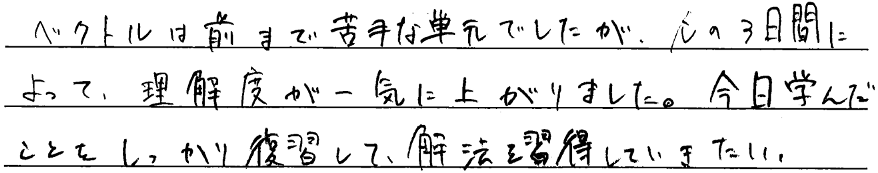 ベクトルは前まで苦手な単元でしたが、この3日間に
よって、理解度が一気に上がりました。今日学んだ
ことをしっかり復習して、解法を習得していきたい。